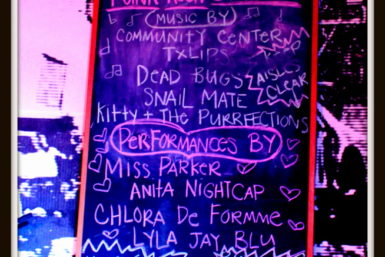 PUNK ROCK
MUSIC BY
COMMUNITY CENTER
TXLIPS
DEAD BUGS
AISLE
CLEAR
SNAIL MATE
KITTY + THE PURRFECTIONS
PERFORMANCES BY
MISS PARKER
ANITA NIGHTCAP
CHLORA DE FORMME
LYLA JAY BLU